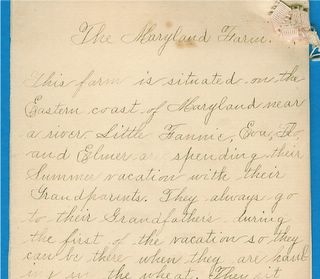 The Maryland Farm.
This farm is situated on the
Eastern coast of Maryland near
a river Little Fannie, Eva, Flo,
and Elmer are spending their
Summer vacation with their
Grandparents. They always go
to their Grandfathers during
the first of the vacation so they
can be there when they are haul
the wheat. They it